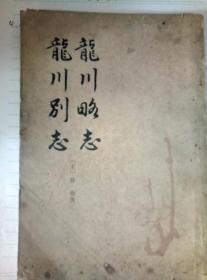 龍川略志
龍川別志